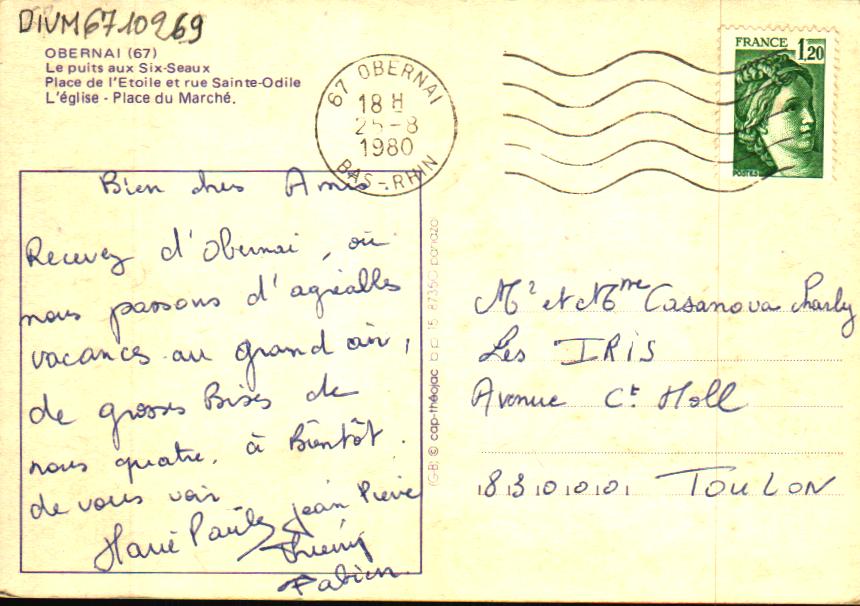 DIVM6710269
OBERNAI (67)
Le puits aux Six-Seaux
Place de l'Etoile et rue Sainte-Odile
L'église - Place du Marché.
67 OBERNAI
18 H
25-8
1980
BAS-RHIN
FRANCE 1,20
POSTES
Bien chers Amis
Recevez d'Obernai, où
nous passons d'agréables
vacances au grand air,
de grosses Bises de
nous quatre. à Bientôt
de vous voir
Marie Paule Jean Pierre
Thierry
Fabien.
(GB) © cap-théojac b.p. 15 87350 panazo
Mr et Mme Casanova Charly
Les IRIS
Avenue Ct Holl
83000 TOULON